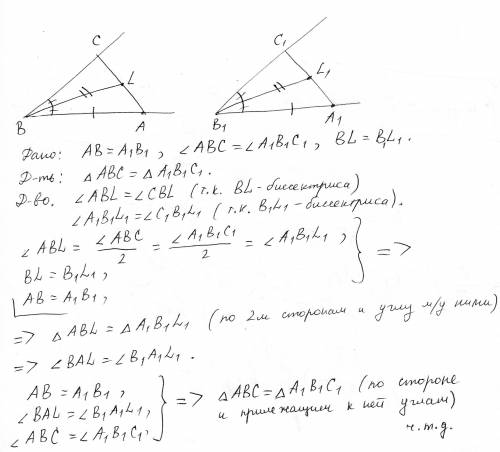 C C₁
L L₁
B A B₁ A₁
Дано: AB = A₁B₁, ∠ABC = ∠A₁B₁C₁, BL = B₁L₁.
Д-ть: △ABC = △A₁B₁C₁.
Д-во. ∠ABL = ∠CBL (т.к. BL - биссектриса)
∠A₁B₁L₁ = ∠C₁B₁L₁ (т.к. B₁L₁ - биссектриса).
∠ABL = ∠ABC/2 = ∠A₁B₁C₁/2 = ∠A₁B₁L₁,
BL = B₁L₁, } =>
AB = A₁B₁,
=> △ABL = △A₁B₁L₁ (по 2м сторонам и углу м/у ними)
=> ∠BAL = ∠B₁A₁L₁.
AB = A₁B₁,
∠BAL = ∠B₁A₁L₁, } => △ABC = △A₁B₁C₁ (по стороне
∠ABC = ∠A₁B₁C₁, и прилежащим к ней углам)
ч.т.д.